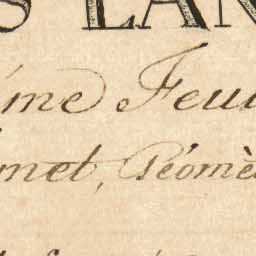 S LAN
ime Feui
met, Géomè